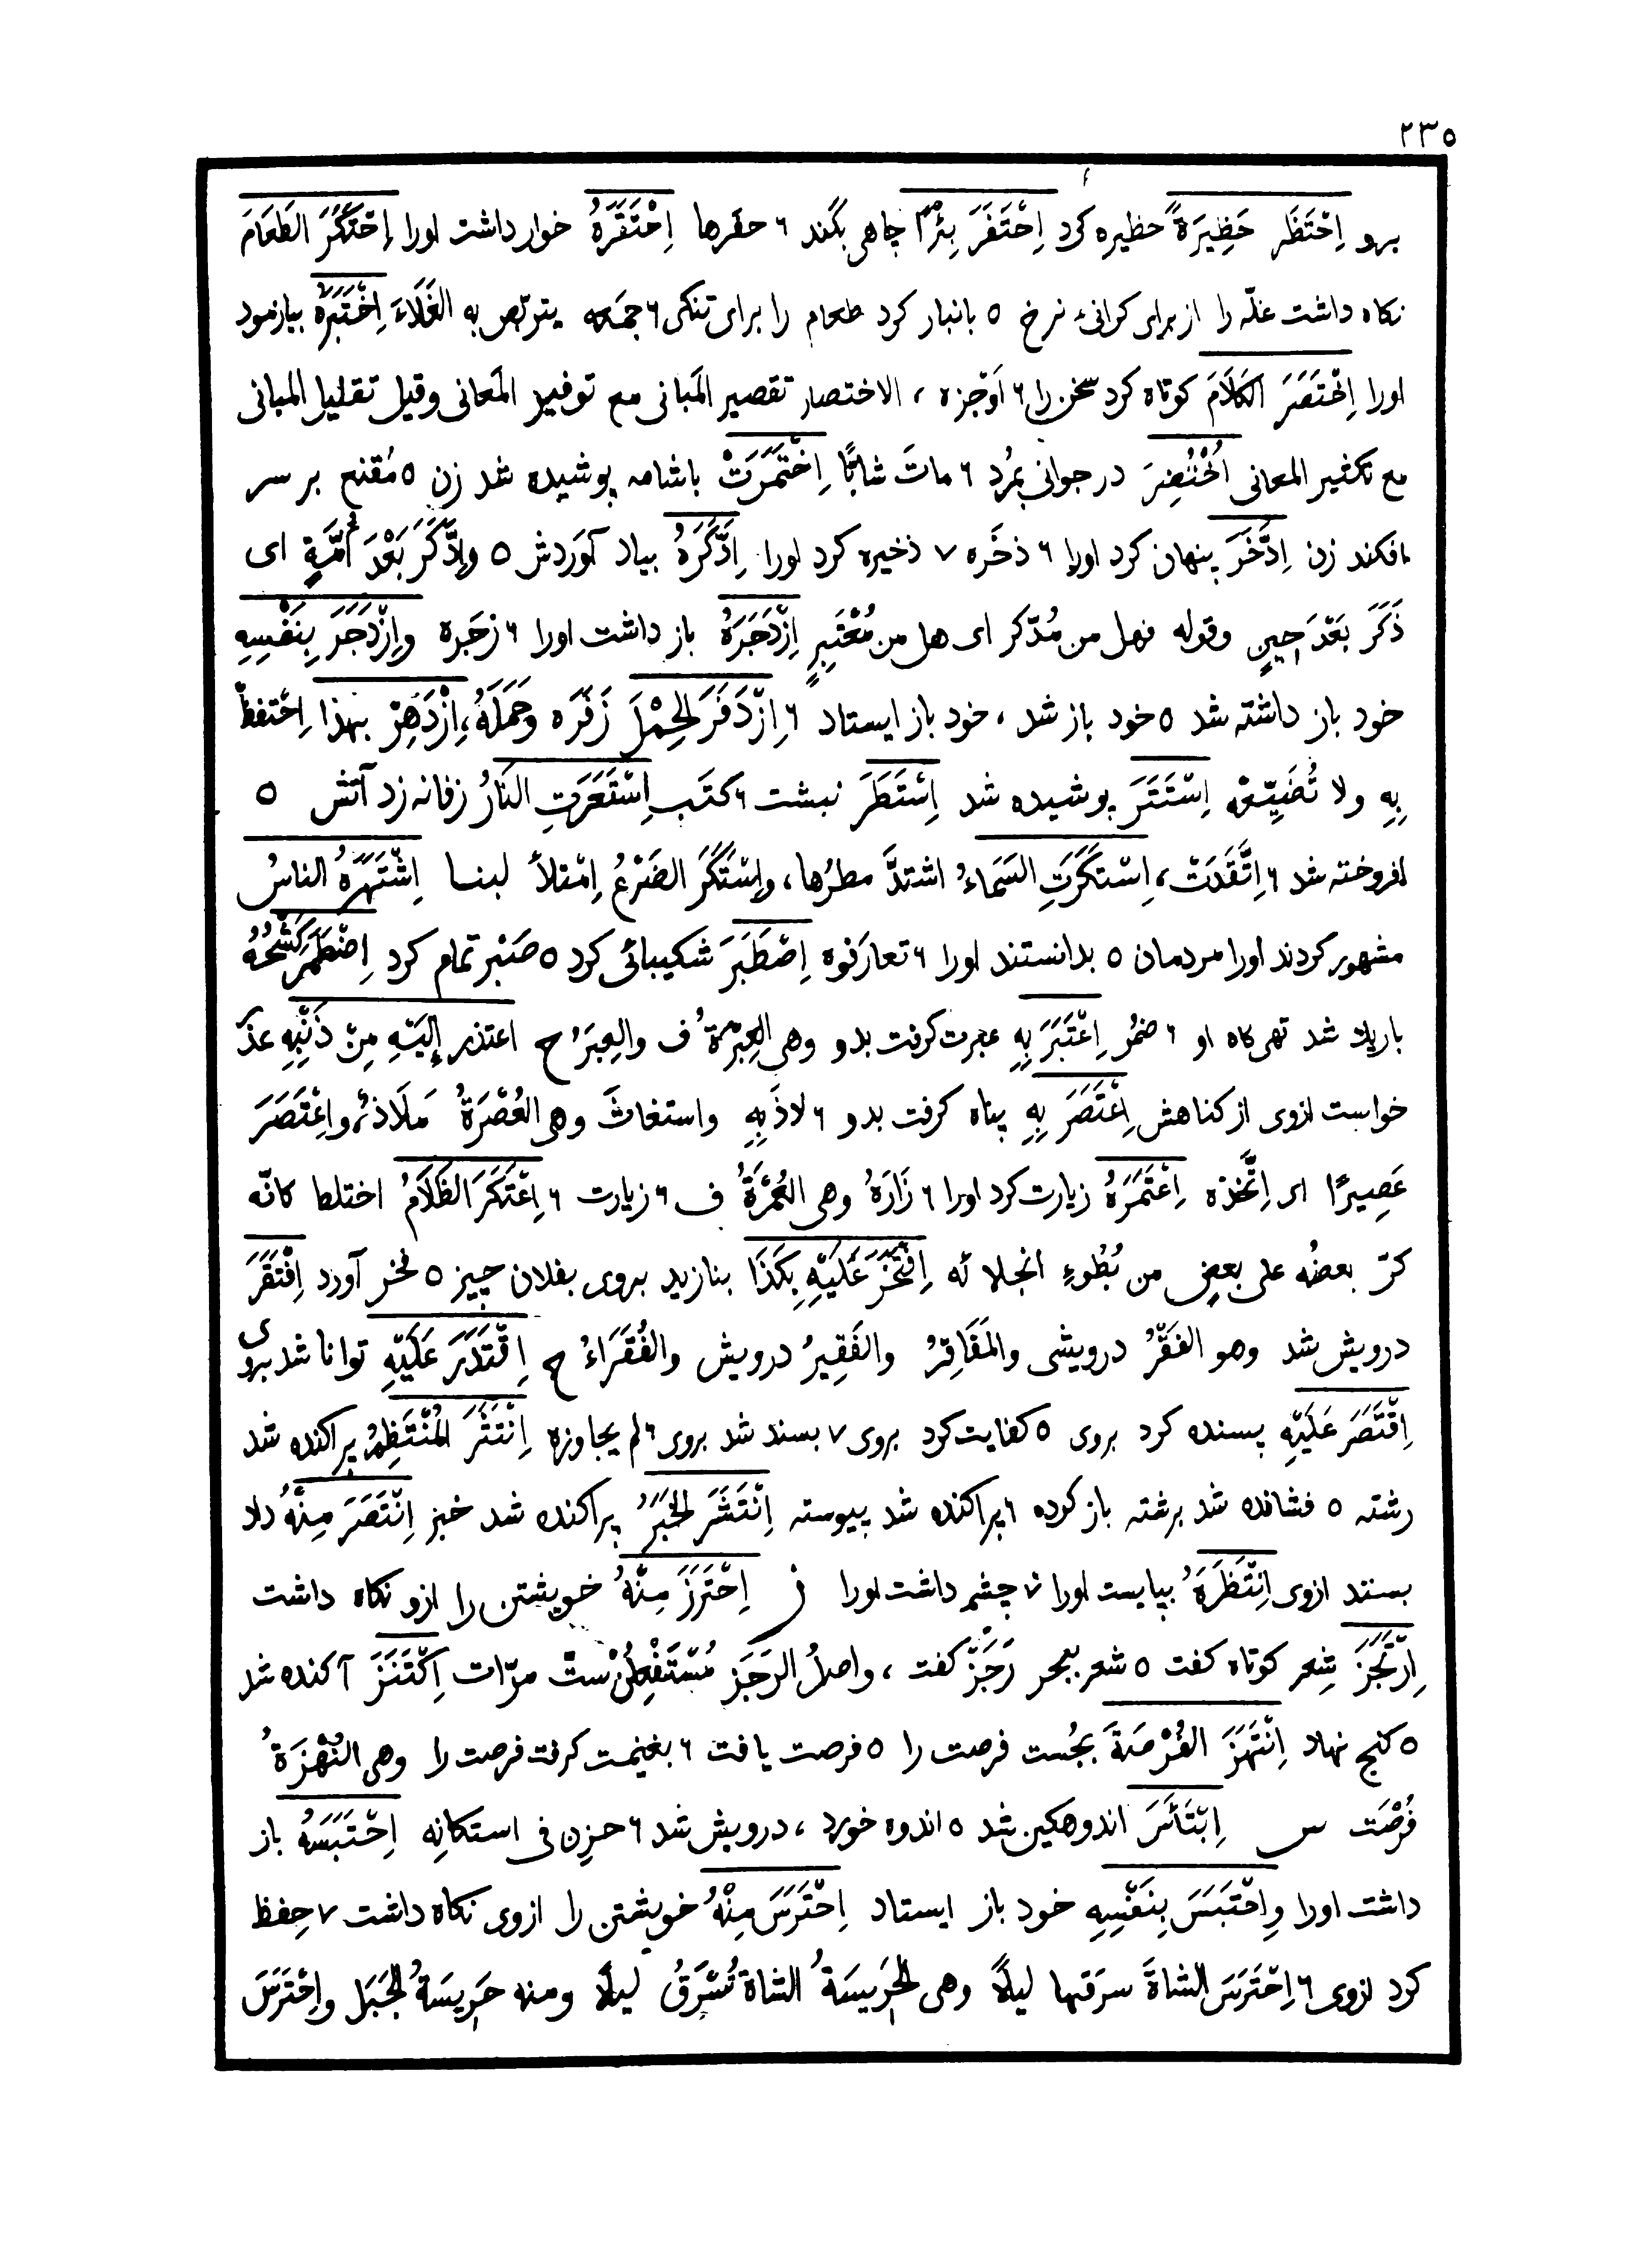 ٢٣٥
برو اِحْتَظَر حَظِيرَةً حظیره کرد اِحْتَفَرَ بِئْرًا چاهی بکند ٦ حفرها اِحْتَقَرَهُ خوار داشت اورا اِحْتَكَرَ الطَعَامَ
نکاه داشت غلّه را از برای کرانیء نرخ ٥ بانبار کرد طعام را برای تنکی ٦ جمَعه يتربّص به الغَلَاءَ اِخْتَبَرَهُ بیازمود
اورا اِخْتَصَرَ الكَلَامَ کوتاه کرد سخن را ٦ اَوْجَزه ، الاختصار تقصير المَبانى مع توفير المَعانى وقيل تقليل المبانى
مع تكفير المعانى اُخْتُضِرَ در جوانی بمُرد ٦ ماتَ شابًّا اِخْتَمَرَتْ باشامه پوشیده شد زن ٥ مُقنع بر سر
افکند زن اِدَّخَرَ پنهان کرد اورا ٦ ذخَره ٧ ذخیره کرد اورا اِدَّكَرَهُ بیاد آوَردش ٥ وادَّكَرَ بَعْدَ اُمَّةٍ ای
ذَكَرَ بَعْدَ حِينٍ وقوله فهل من مُدّكر ای هل من مُعْتَبِرٍ اِزْدَجَرَهُ باز داشت اورا ٦ زجَره وازْدَجَرَ بِنَفْسِهِ
خود باز داشته شد ٥ خود باز شد ، خود باز ایستاد ٦ اِزْدَفَرَ الحِمْلَ زَفَره وحَمَلَهُ ، اِزْدَهِرْ بهذا اِحْتفظْ
بِهِ ولا تُضَيِّعْه اِسْتَتَرَ پوشیده شد اِسْتَطَرَ نبشت ٦ كتَب اِسْتَعَرَتِ النَارُ زفانه زد آتش ٥
افروخته شد ٦ اِتَّقَدَتْ ، اِسْتكَرَتِ السَمَاءُ اشتدَّ مطرُها ، واشْتَكَرَ الضَرْعُ اِمْتلأ لبنا اِشْتَهَرَهُ الناسُ
مشهور کردند اورا مردمان ٥ بدانستند اورا ٦ تعارَفوه اِصْطَبَرَ شکیبائی کرد ٥ صَبْر تمام کرد اِضْطَمَرَ كَشْحُهُ
باریك شد تهی کاه او ٦ ضمُر اِعْتَبَرَ بِهِ عبرت کرفت بدو وهی العِبْرَةُ ف والعِبَرُ ح اعتذر اِلَيْهِ مِنْ ذَنْبِهِ عذر
خواست ازوی از کناهش اِعْتَصَرَ بِهِ پناه کرفت بدو ٦ لاذَ بِهِ واستغاثَ وهی العُصْرَةُ مَلَاذٌ ، واِعْتَصَرَ
عَصِيرًا ای اِتَّخذه اِعْتَمَرَهُ زیارت کرد اورا ٦ زَارَهُ وهی العُمْرَةُ ف ٦ زیارت ٦ اِعْتَكَرَ الظَلَامُ اختلط كانّه
كرّ بعضُه على بعض من بُطُوءِ انجلائه اِفْتَخَرَ عَلَيْهِ بِكَذَا بنازید بروی بفلان چیز ٥ فخر آورد اِفْتَقَرَ
درویش شد وهو الفَقْرُ درویشی والمَفَاقِرُ والفَقِيرُ درویش والفُقَرَاءُ ح اِقْتَدَرَ عَلَيْهِ توانا شد بروی
اِقْتَصَرَ عَلَيْهِ پسنده کرد بروی ٥ کفایت کرد بروی ٧ بسند شد بروی ٦ لم يجاوزه اِنْتَثَرَ المُنْتَظِمُ پراکنده شد
رشته ٥ فشانده شد برشته باز کرده ٦ پراکنده شد پیوسته اِنْتَشَرَ الخَبَرُ پراکنده شد خبر اِنْتَصَرَ مِنْهُ داد
بستد ازوی اِنْتَظَرَهُ بپایست اورا ٧ چشم داشت اورا ز اِحْتَرَزَ مِنْهُ خویشتن را ازو نکاه داشت
اِرْتَجَزَ شِعر کوتاه کفت ٥ شعر ببحر رَجَزْ کفت ، واصلُ الرَجَز مُسْتَفْعِلُنْ ستّ مرّات اِكْتَنَزَ آکنده شد
٥ کنج نهاد اِنْتَهَزَ الفُرْصَةَ بجُست فرصت را ٥ فرصت یافت ٦ بغنیمت کرفت فرصت را وهی النُهْزَةُ
فُرْصَت س اِبْتَأَسَ اندوهکین شد ٥ اندوه خورد ، درویش شد ٦ حزِن فی استكانِه اِحْتَبَسَهُ باز
داشت اورا وِاحْتَبَسَ بِنَفْسِهِ خود باز ایستاد اِحْتَرَسَ مِنْهُ خویشتن را ازوی نکاه داشت ٧ حِفظ
کرد ازوی ٦ اِحْتَرَسَ الشاةَ سرَقها ليلًا وهی الحَرِيسَةُ الشاة تُسْرَقُ ليلًا ومنه حَرِيسَةُ الجَبَل واِحْتَرَسَ